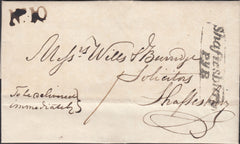 No. 10
Shaftesbury
P.y P.
Messrs Wills & Burridge
Solicitors
Shaftesbury
To be delivered
immediately